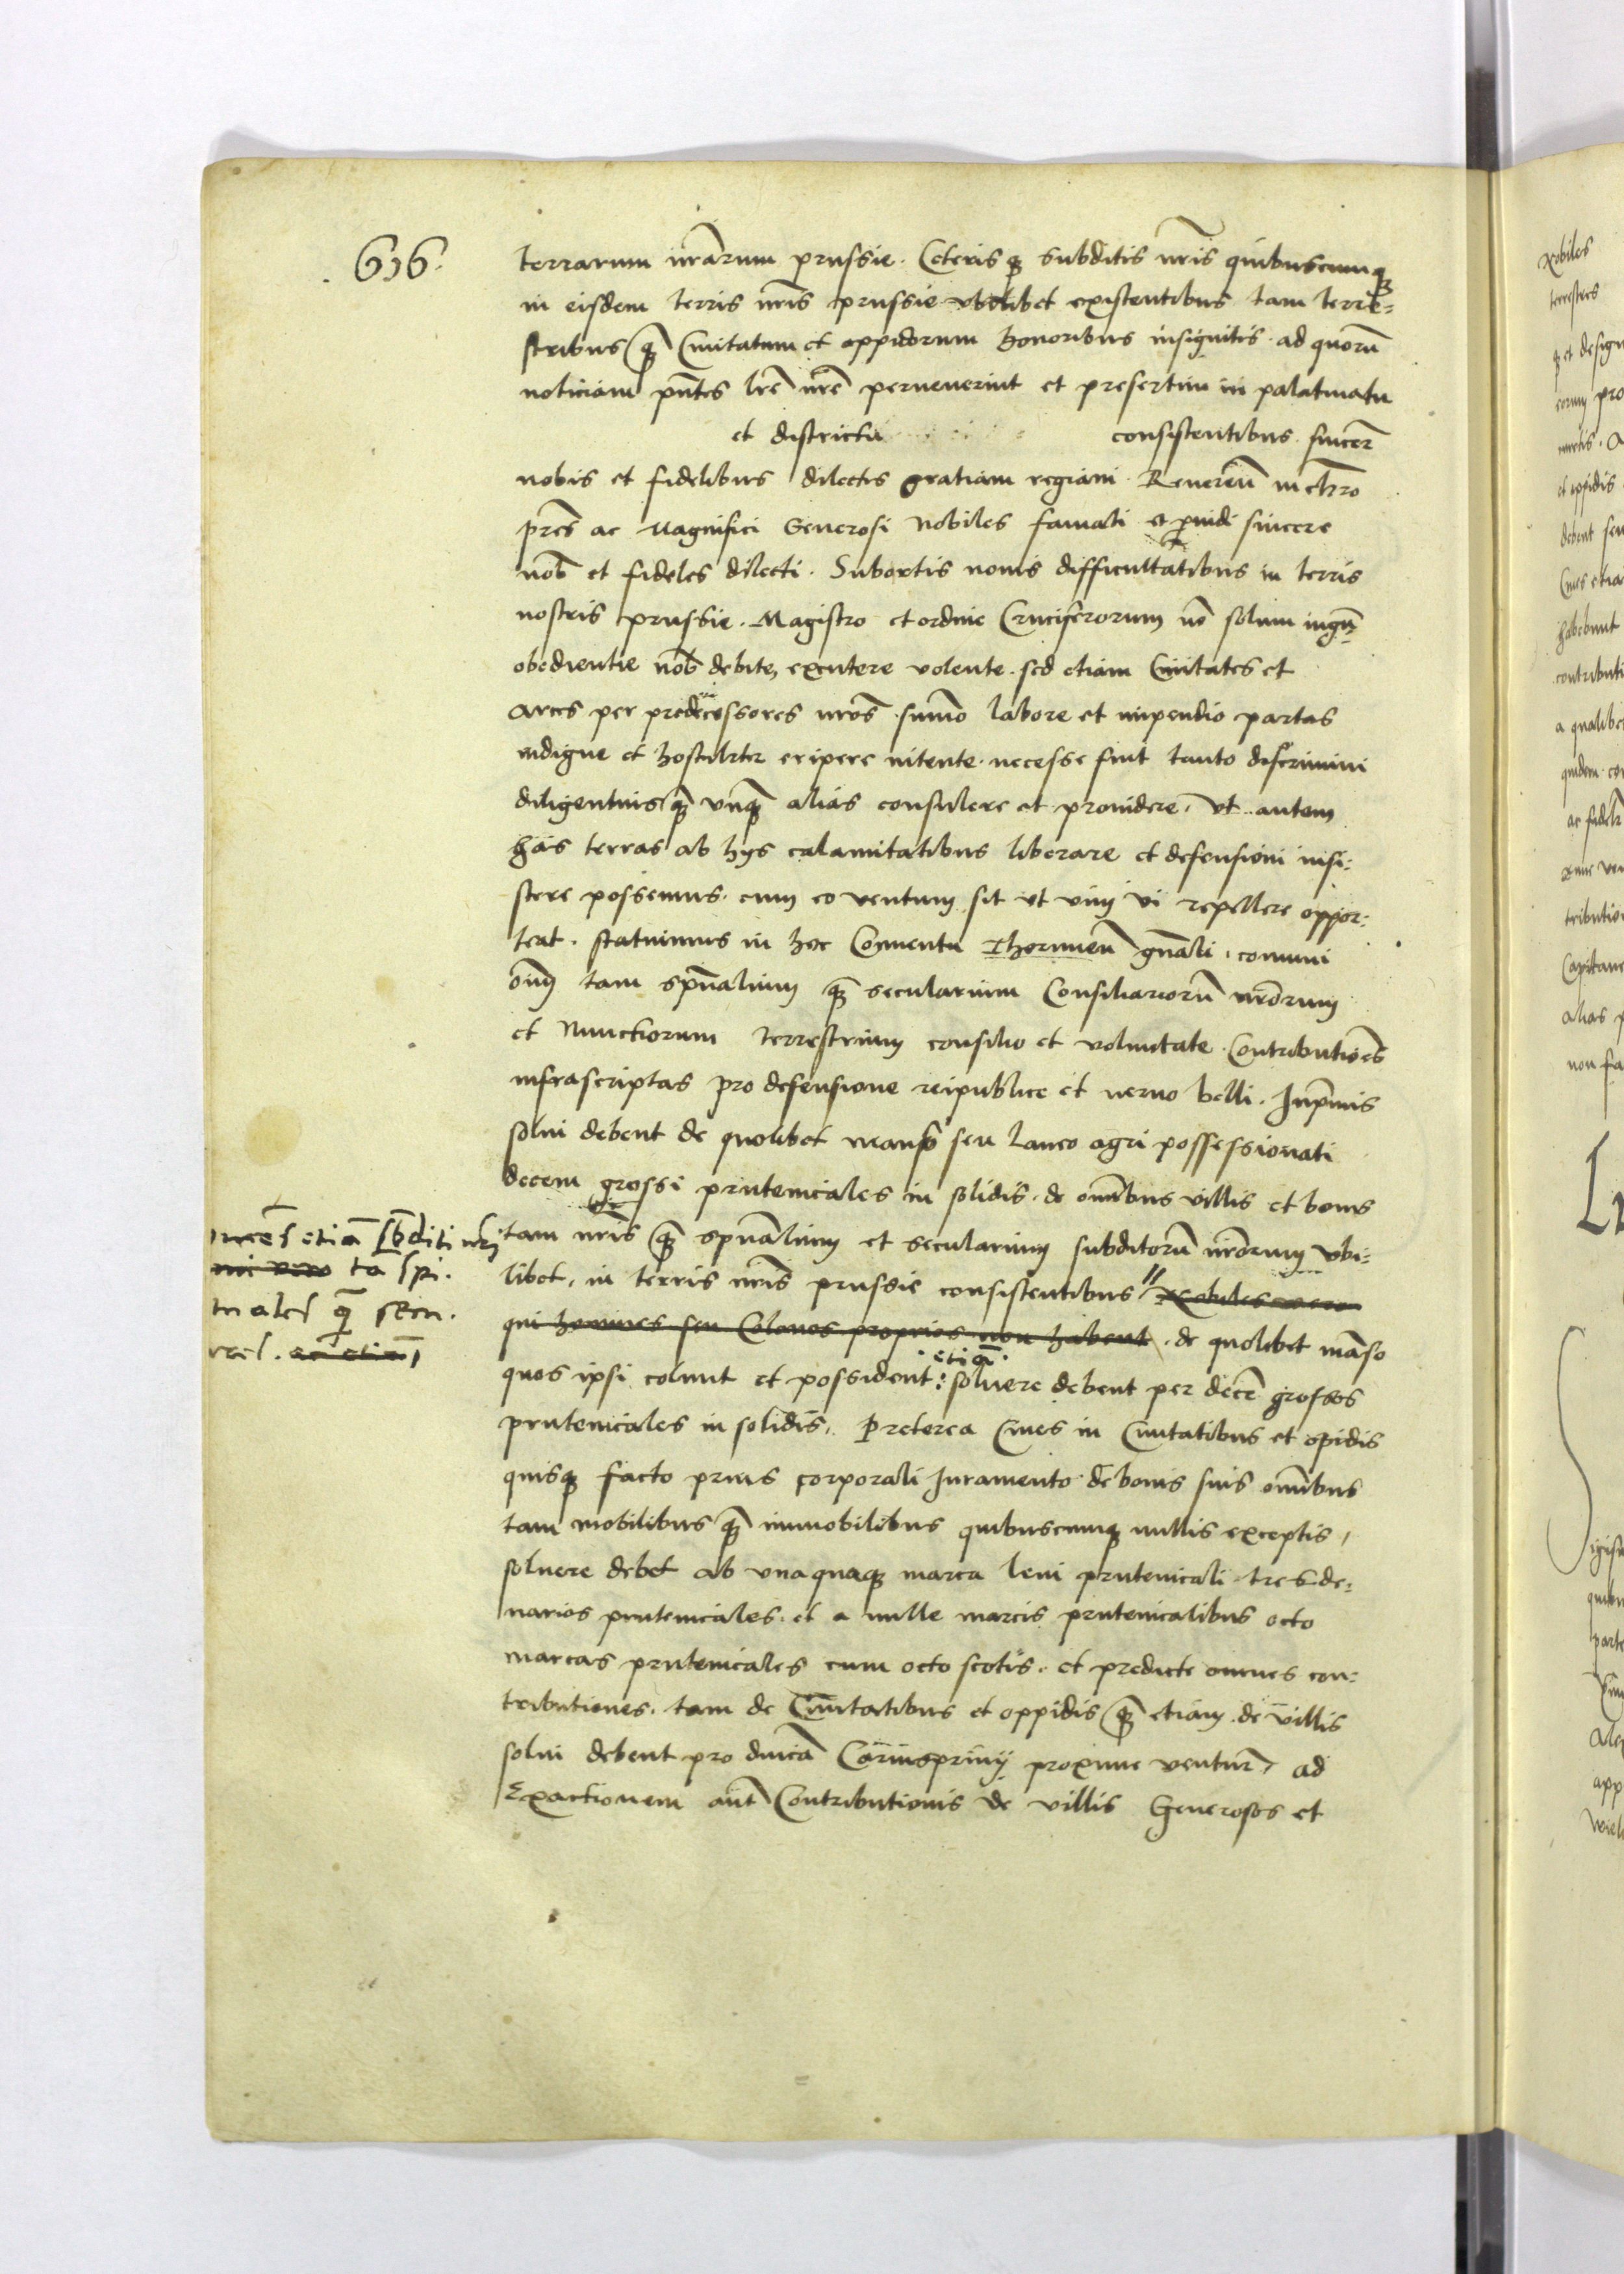 636.
terrarum nrarum prussie. Ceteris q subditis nris quibuscumq
in eisdem terris nris prussie vbilibet existentibus tam terre-
stribus q Ciuitatum et oppidorum honoribus insignitis. ad quoru
noticiam pntes lre nre peruenerint et presertim in palatinatu
et districtu consistentibus. sincer
nobis et fidelibus dilectis gratiam regiam. Reueren in chro
pres ac Magnifici Generosi Nobiles famati et prouidi sincere
nob et fideles dilecti. Subortis nouis difficultatibus in terris
nostris prussie. Magistro et ordine Cruciferorum no solum iugu
obedientie nob debite, excutere volente. sed etiam Ciuitates et
arces per predecessores nros summo labore et impendio partas
indigne et hostiliter eripere nitente. necesse fuit tanto discrimini
diligentius q vnq alias consulere et prouidere. Vt autem
has terras ab hys calamitatibus liberare et defensioni insi-
stere possemus. cum eo ventum sit vt vim vi repellere oppor-
teat. statuimus in hoc Conuentu Thorunien gnali. comuni
oim tam spualium q secularium Consiliarioru nrorum
et Nunctiorum terrestrium consilio et voluntate. Contributiones
infrascriptas pro defensione reipublice et neruo belli. Inprimis
solui debent de quolibet manso seu laneo agri possessionati
decem grossi prutenicales in solidis. de omnibus villis et bonis
tam nris q spualium et secularium subditoru nrorum vbi-
libet, in terris nris prussie consistentibus // Nobiles vero
qui homines seu Colonos proprios non habent. de quolibet manso
quos ipsi colunt et possident: etia soluere debent per dece grossos
prutenicales in solidis. Preterea Ciues in Ciuitatibus et opidis
quisq facto prius corporali Iuramento de bonis suis omnibus
tam mobilibus q immobilibus quibuscumq nullis exceptis,
soluere debet ab vnaquaq marca leui prutenicali tres de-
narios prutenicales. et a mille marcis prutenicalibus octo
marcas prutenicales cum octo scotis. et predicte omnes con-
tributiones. tam de Ciuitatibus et oppidis q etiam de villis
solui debent pro dnica Carnispriuij proxime ventur, ad
Exactionem aut Contributionis de villis Generosos et
etia sbditi nri
ta spi.
tuales q secu.